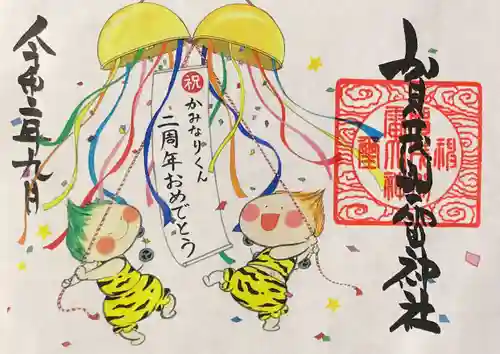 賀茂別雷神社
祝
かみなりくん
二周年おめでとう
令和二年九月